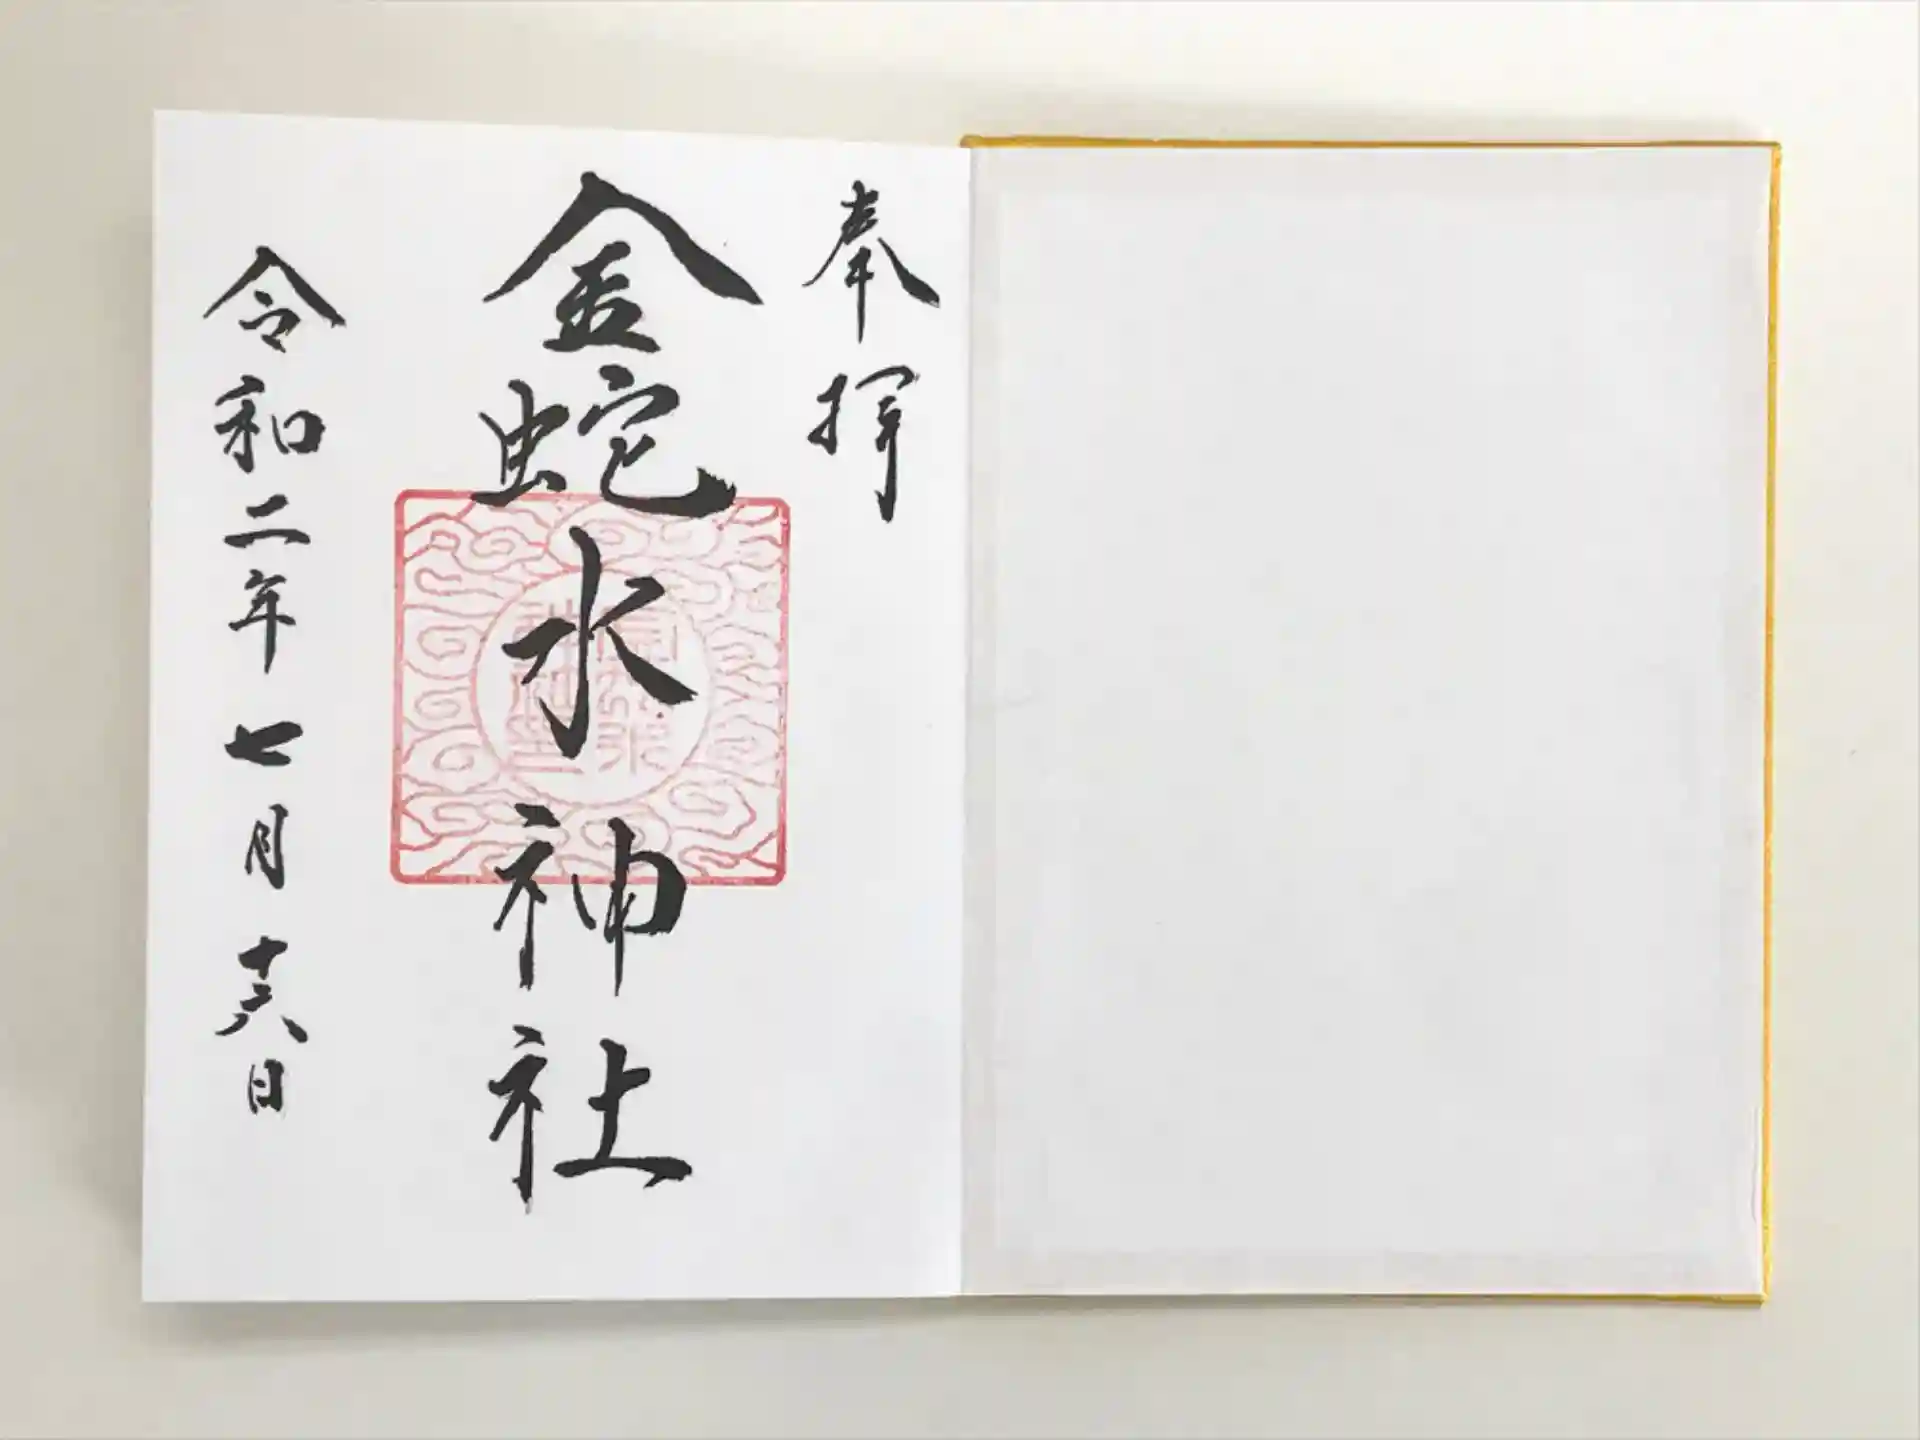 奉拝
金蛇水神社
令和二年七月十六日